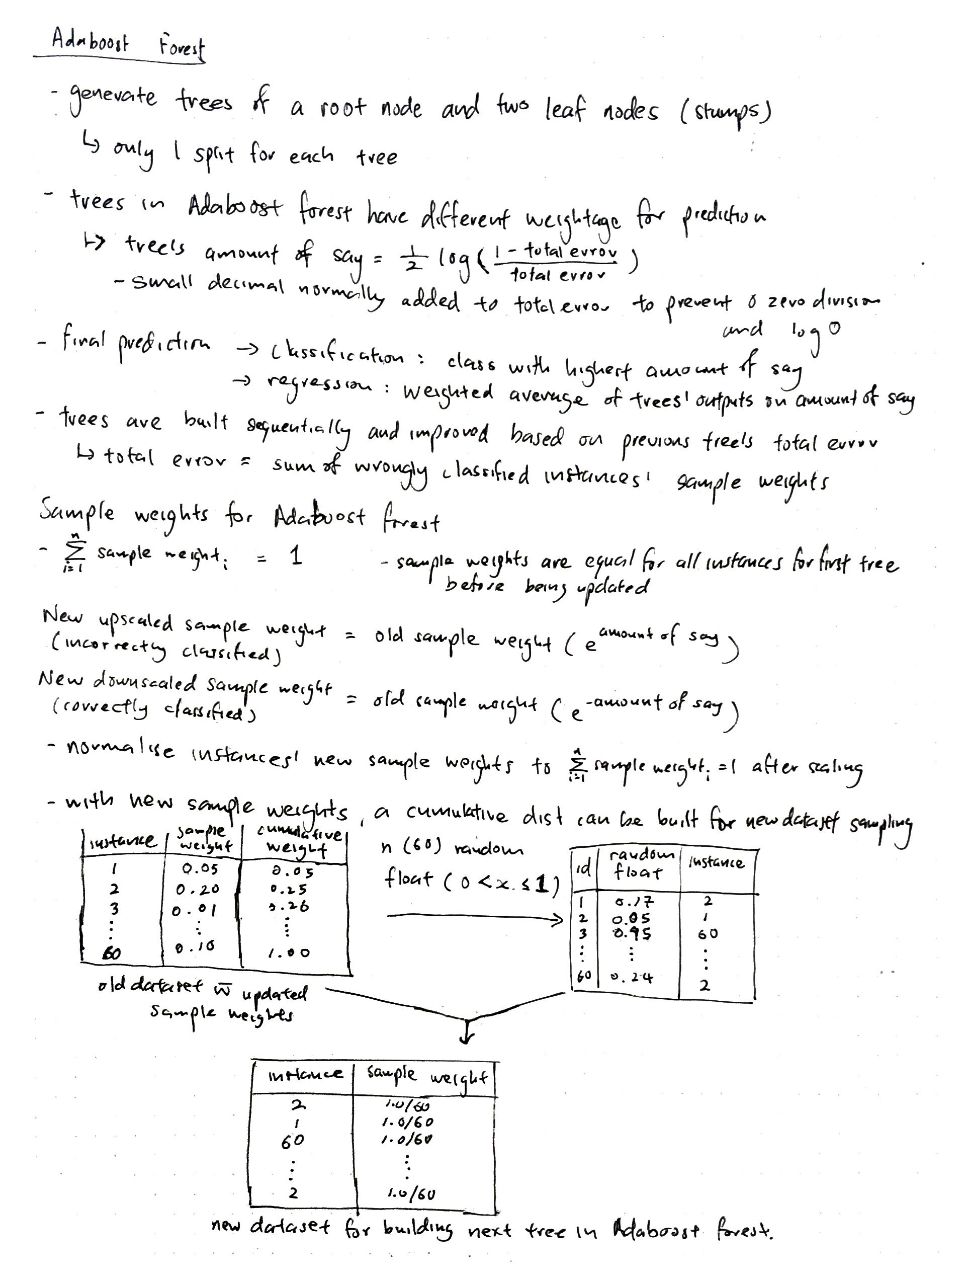 Adaboost Forest
- generate trees of a root node and two leaf nodes (stumps)
↳ only 1 split for each tree
- trees in Adaboost forest have different weightage for prediction
↳ tree's amount of say = 1/2 log( (1 - total error) / (total error) )
- small decimal normally added to total error to prevent zero division
and log 0
- final prediction → classification : class with highest amount of say
→ regression : weighted average of trees' outputs on amount of say
- trees are built sequentially and improved based on previous tree's total error
↳ total error = sum of wrongly classified instances' sample weights
Sample weights for Adaboost forest
- Σ_{i=1}^{n} sample weight_i = 1 - sample weights are equal for all instances for first tree
before being updated
New upscaled sample weight = old sample weight (e^{amount of say})
(incorrectly classified)
New downscaled sample weight = old sample weight (e^{-amount of say})
(correctly classified)
- normalise instances' new sample weights to Σ_{i=1}^{n} sample weight_i = 1 after scaling
- with new sample weights, a cumulative dist can be built for new dataset sampling
instance | sample weight | cumulative weight
1 | 0.05 | 0.05
2 | 0.20 | 0.25
3 | 0.01 | 0.26
⋮ | ⋮ | ⋮
60 | 0.10 | 1.00
old dataset w̅ updated
sample weights
n (60) random
float (0 < x ≤ 1)
id | random float | instance
1 | 0.17 | 2
2 | 0.05 | 1
3 | 0.95 | 60
⋮ | ⋮ | ⋮
60 | 0.24 | 2
instance | sample weight
2 | 1.0/60
1 | 1.0/60
60 | 1.0/60
⋮ | ⋮
2 | 1.0/60
new dataset for building next tree in Adaboost forest.